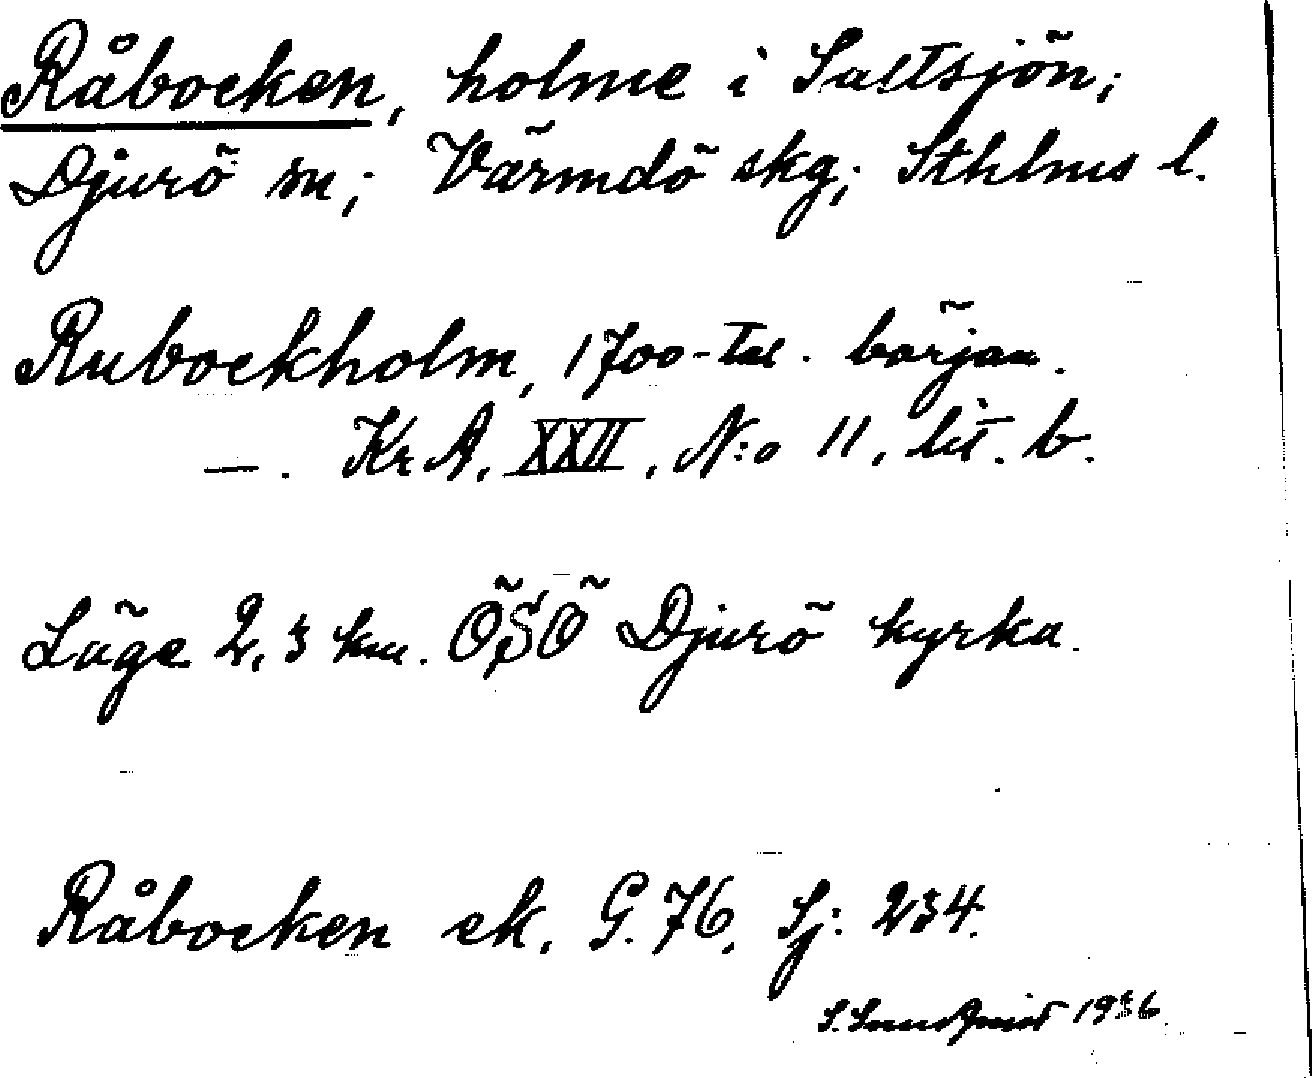 Råbocken, holme i Saltsjön;
Djurö sn; Värmdö skg; Sthlms l.
Rubockholm, 1700-tal. början.
—. KrA. XXII, N:o 11, lit. b.
Läge 2,3 km. ÖSÖ Djurö kyrka.
Råbocken ek. G. 76, Sj: 234.
S. 1936